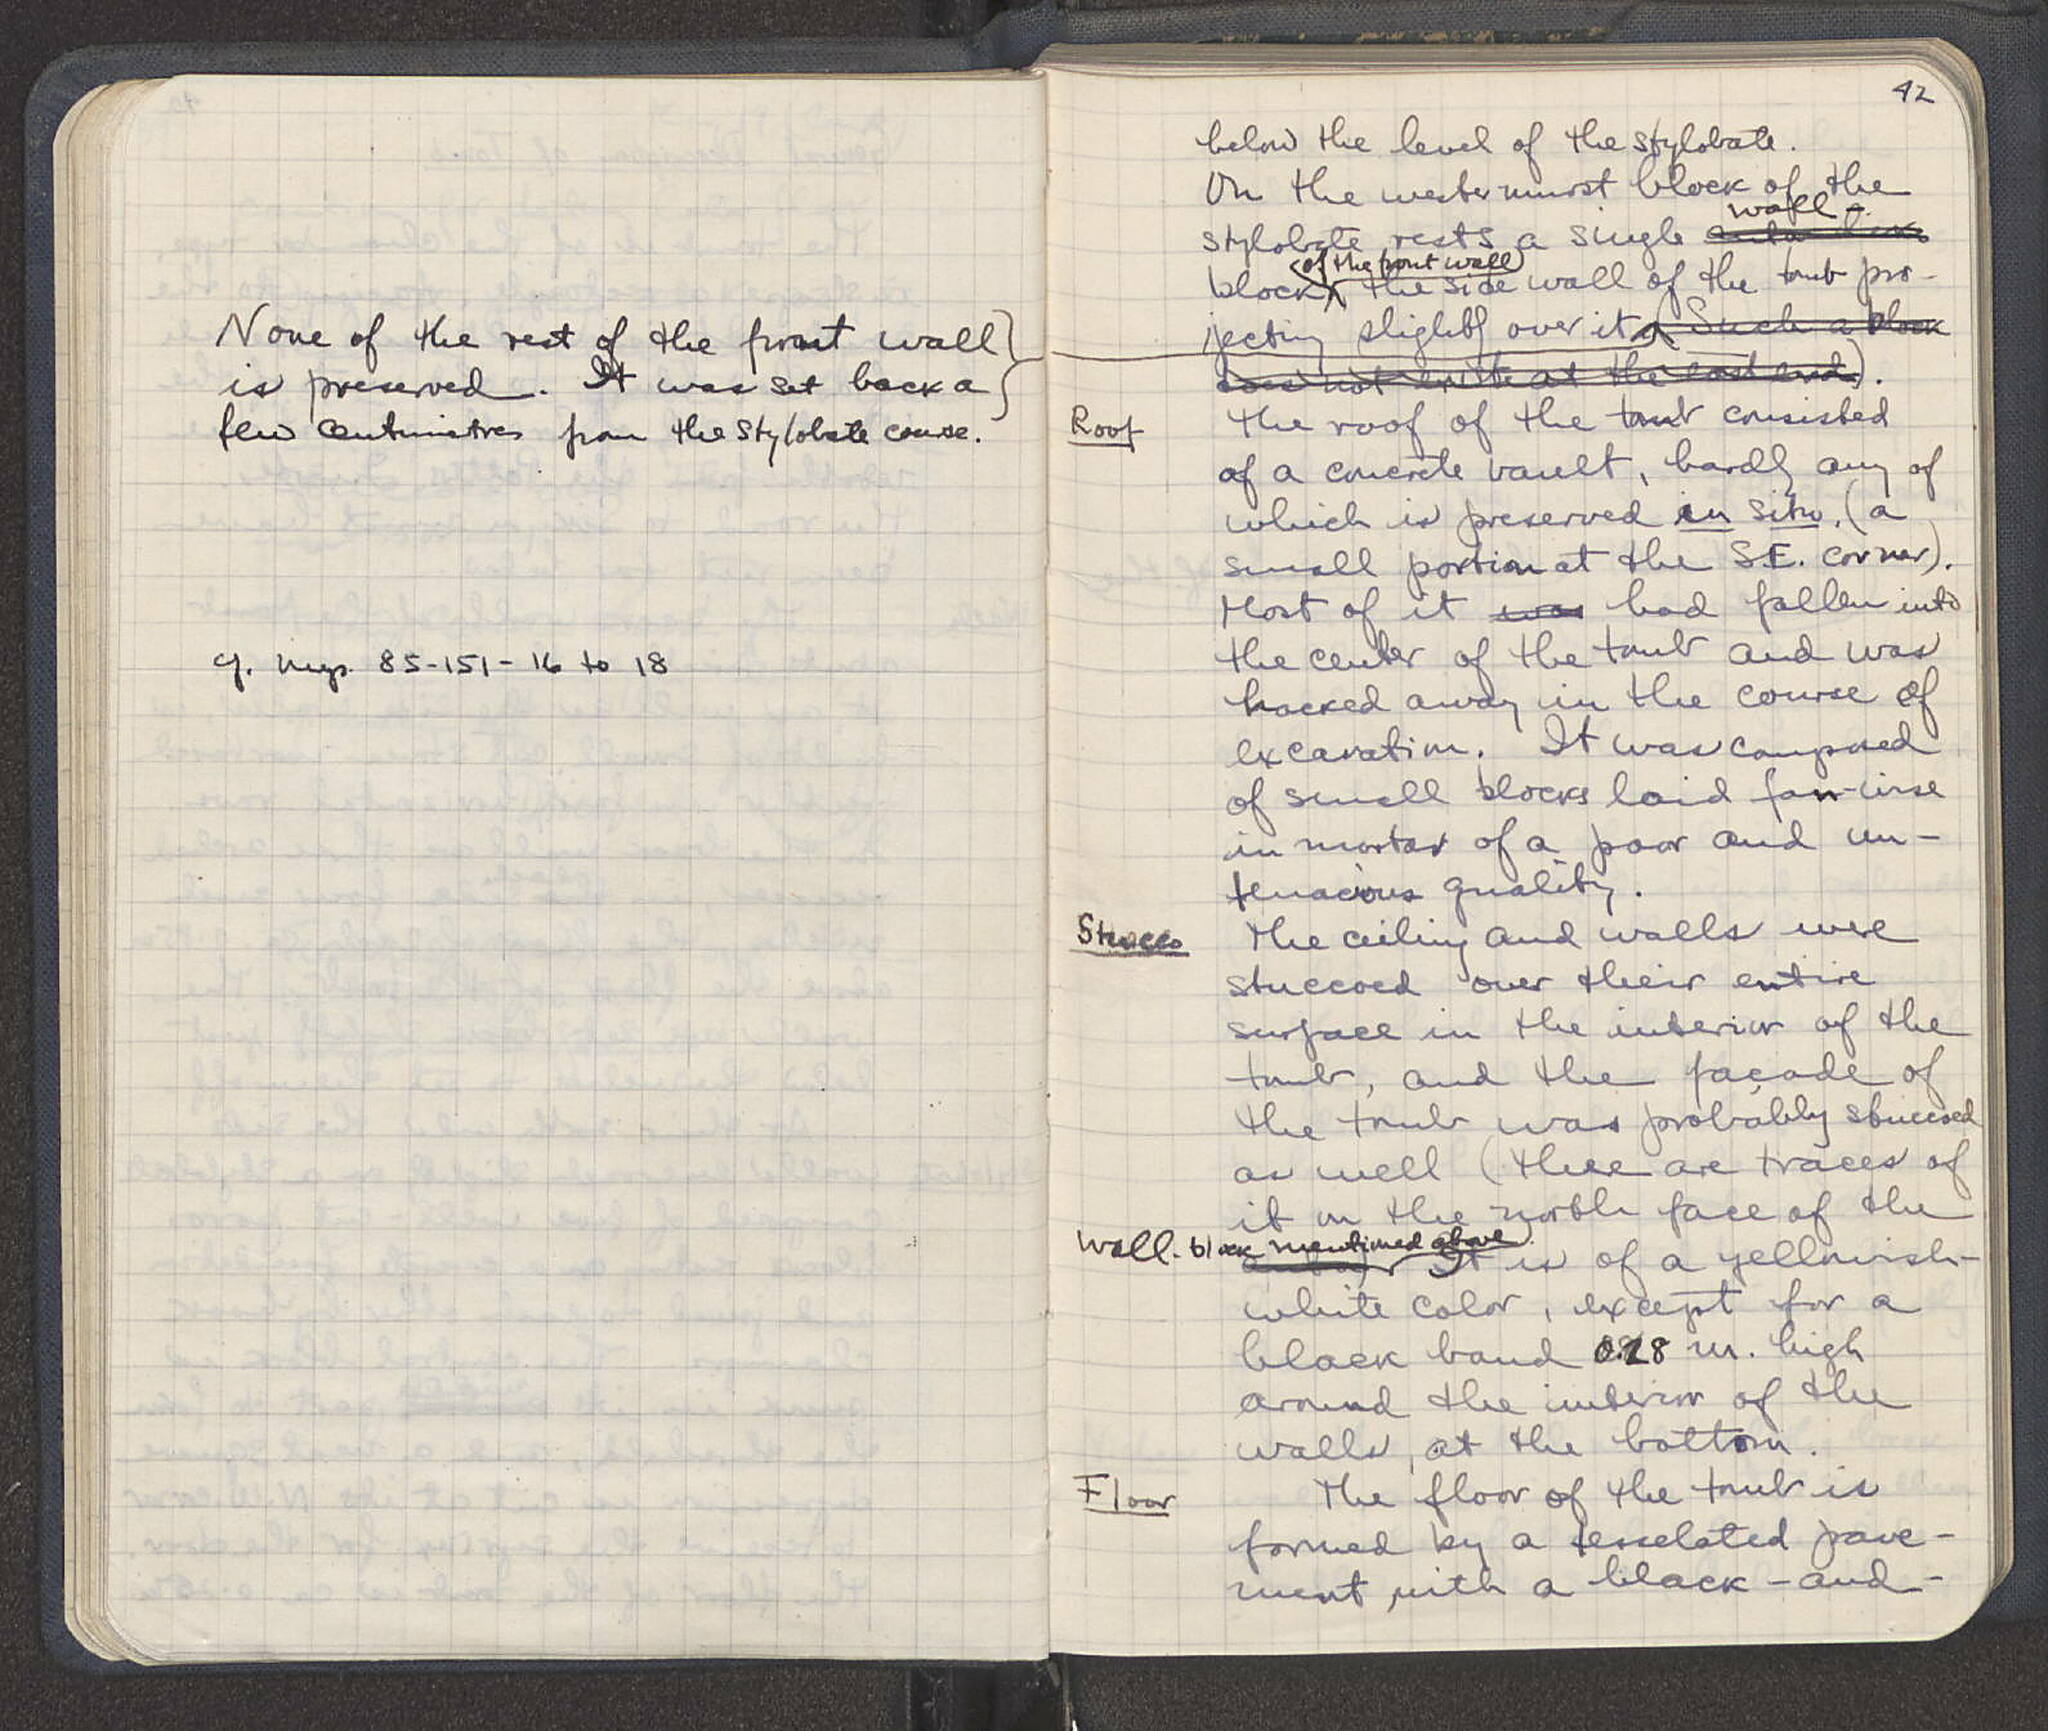 None of the rest of the front wall
is preserved. It was set back a
few centimetres from the stylobate course.
cf. negs. 85-151-16 to 18
42
below the level of the stylobate.
On the westernmost block of the
wall-
stylobate rests a single
(of the front wall)
block, the side wall of the tomb pro-
jecting slightly over it. (Such a block
does not exist at the east end).
Roof
The roof of the tomb consisted
of a concrete vault, hardly any of
which is preserved in situ. (a
small portion at the S.E. corner).
Most of it was had fallen into
the center of the tomb and was
hacked away in the course of
excavation. It was composed
of small blocks laid fan-wise
in mortar of a poor and un-
tenacious quality.
Stucco
The ceiling and walls were
stuccoed over their entire
surface in the interior of the
tomb, and the façade of
the tomb was probably stuccoed
as well (there are traces of
it on the north face of the
wall-block mentioned above).
It is of a yellowish-
white color, except for a
black band 0.28 m. high
around the interior of the
walls, at the bottom.
Floor
The floor of the tomb is
formed by a tesselated pave-
ment, with a black-and-